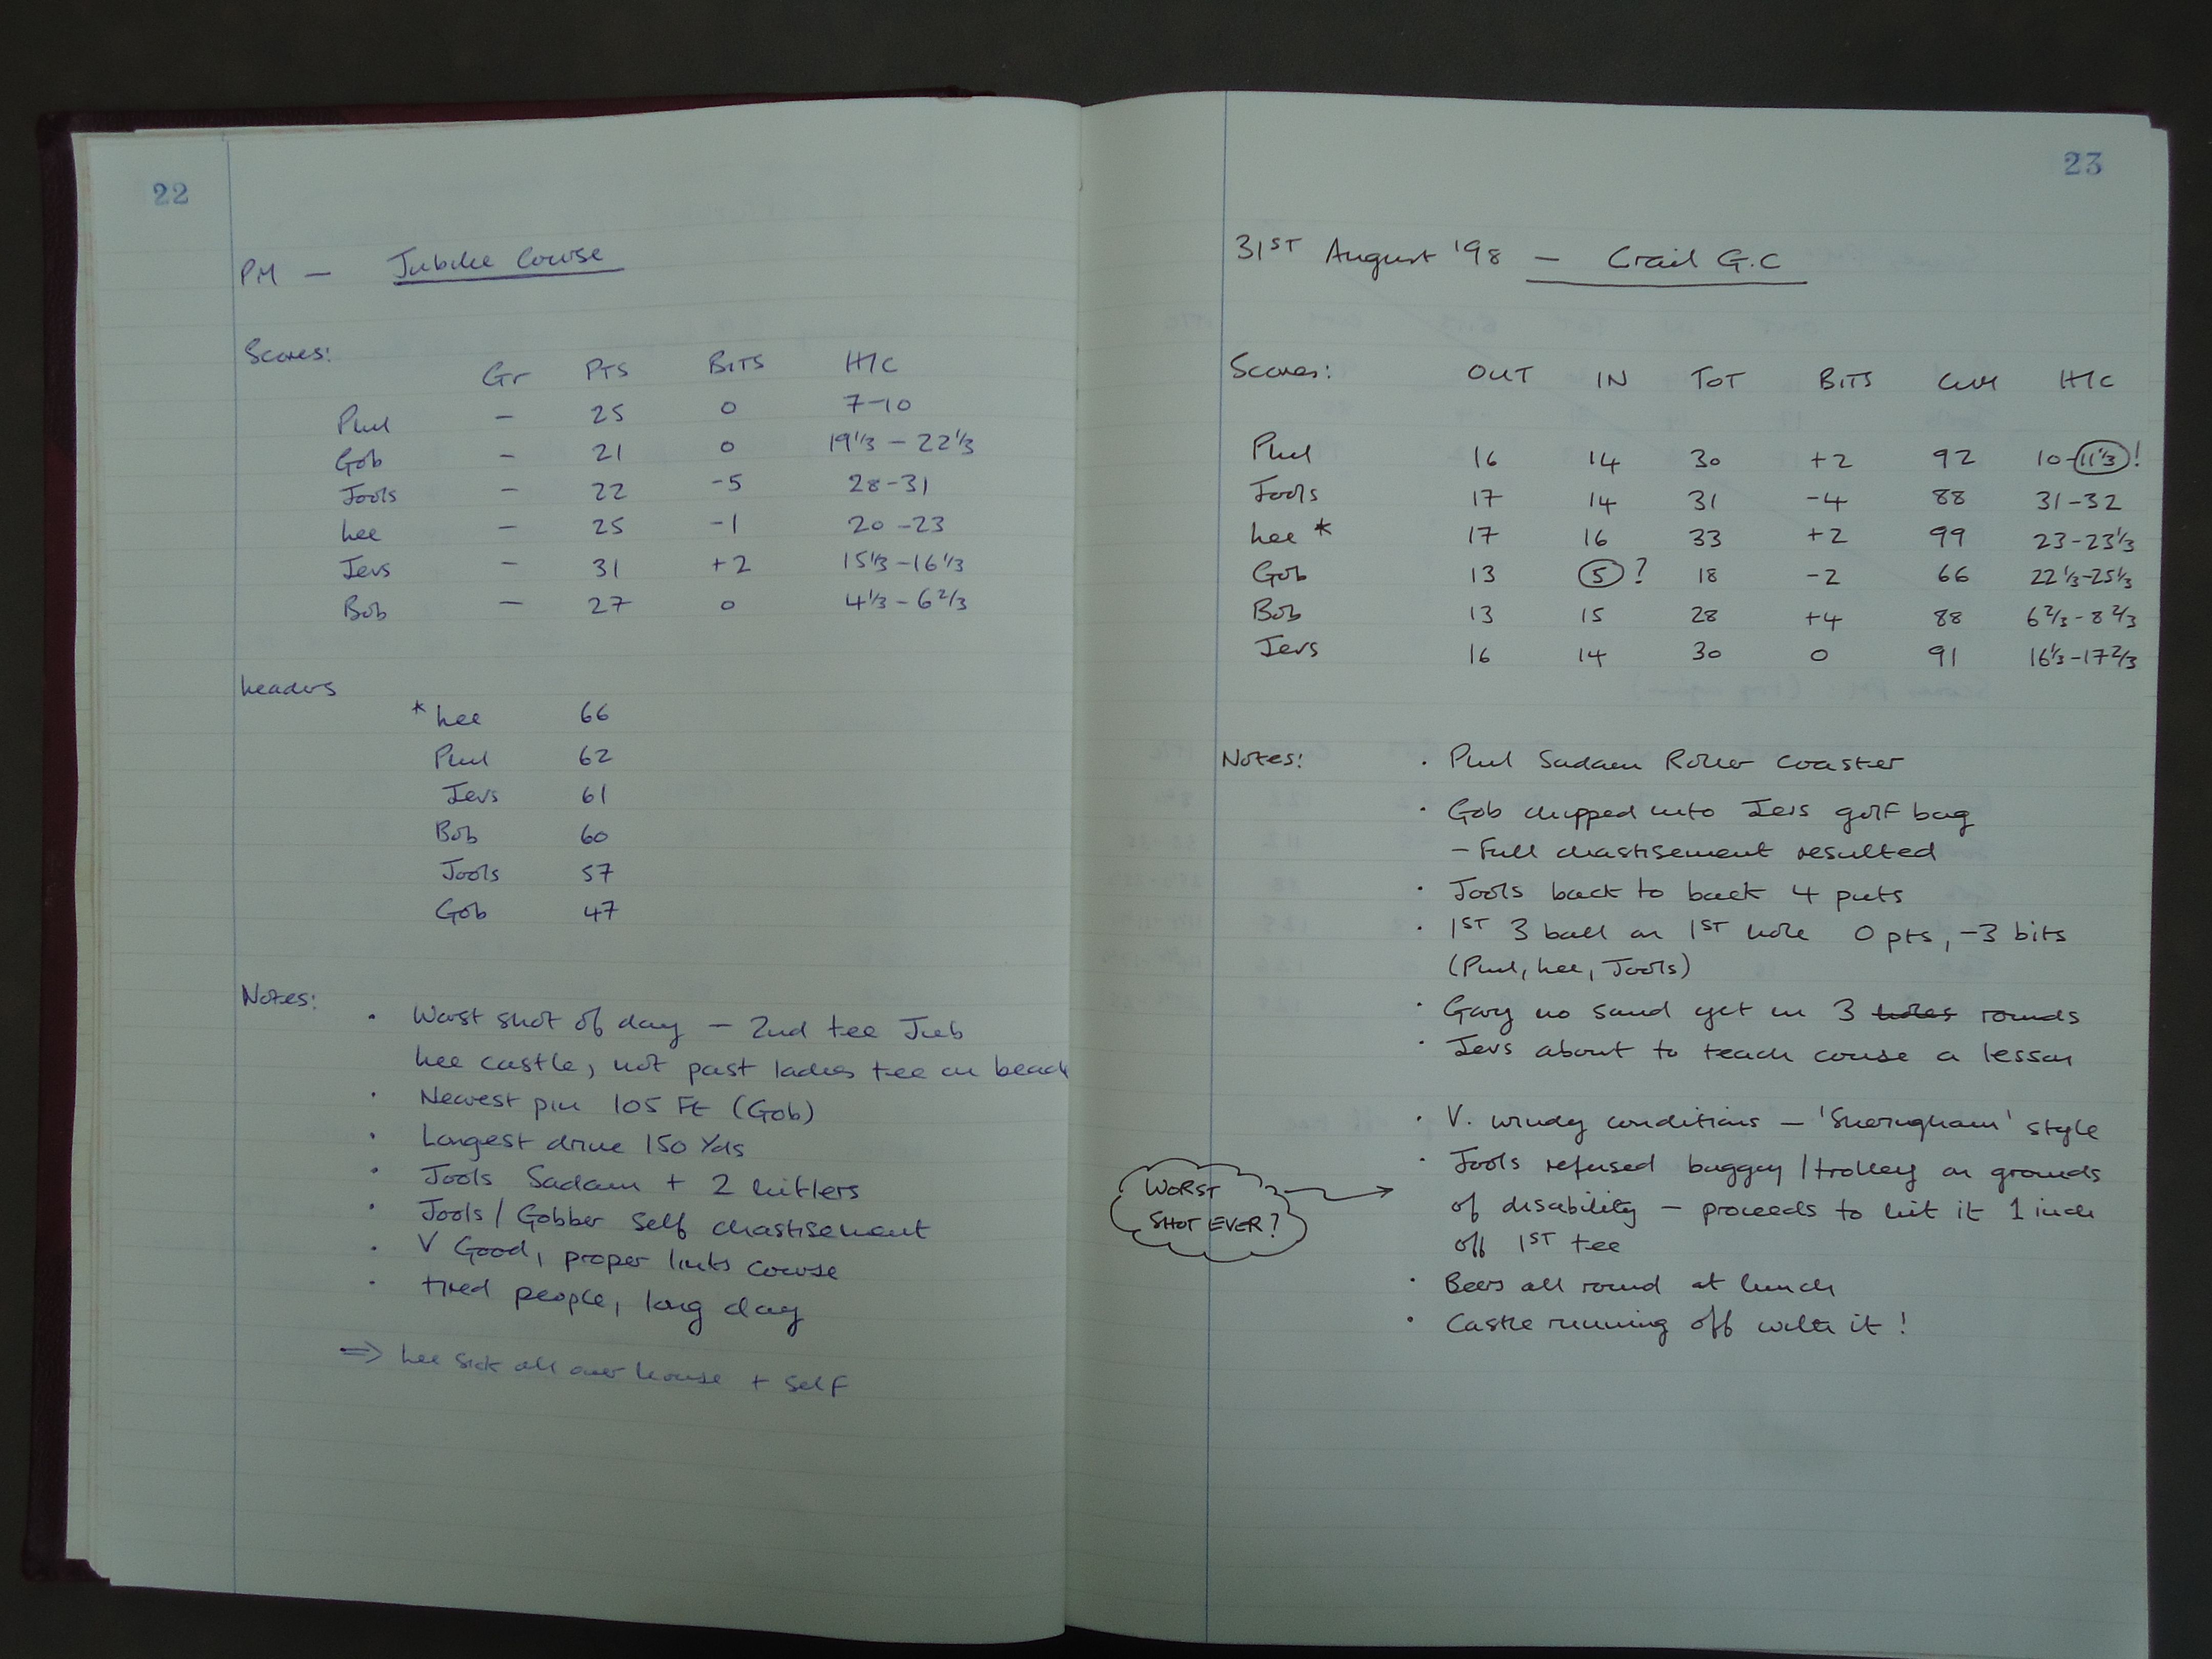 22
PM — Jubilee Course
Scores:
Gr PTS BITS H/C
Phil - 25 0 7-10
Gob - 21 0 19 1/3 - 22 1/3
Jools - 22 -5 28-31
Lee - 25 -1 20-23
Jevs - 31 +2 15 1/3 - 16 1/3
Bob - 27 0 4 1/3 - 6 2/3
Leaders
* Lee 66
Phil 62
Jevs 61
Bob 60
Jools 57
Gob 47
Notes:
· Worst shot of day - 2nd tee Jub
Lee castle, not past ladies tee on beach
· Nearest pin 105 Ft (Gob)
· Longest drive 150 Yds
· Jools Sadam + 2 hitlers
· Jools / Gobber self chastisement
· V Good, proper links course
· tired people, long day
⇒ Lee sick all over house + self
23
31ST August '98 — Crail G.C
Scores: OUT IN TOT BITS CUM H/C
Phil 16 14 30 +2 92 10-11 1/3 !
Jools 17 14 31 -4 88 31-32
Lee * 17 16 33 +2 99 23-23 1/3
Gob 13 5 ? 18 -2 66 22 1/3-25 1/3
Bob 13 15 28 +4 88 6 2/3-8 2/3
Jevs 16 14 30 0 91 16 1/3-17 2/3
Notes: · Phil Sadam Roller Coaster
· Gob chipped into Jevs golf bag
- Full chastisement resulted
· Jools back to back 4 puts
· 1ST 3 ball on 1ST hole 0 pts, -3 bits
(Phil, Lee, Jools)
· Gary no sand yet in 3 holes rounds
· Jevs about to teach course a lesson
· V. windy conditions - 'Sheringham' style
· Jools refused buggy / trolley on grounds
of disability - proceeds to hit it 1 inch
off 1ST tee
WORST
SHOT EVER?
· Beers all round at lunch
· Castle running off with it!